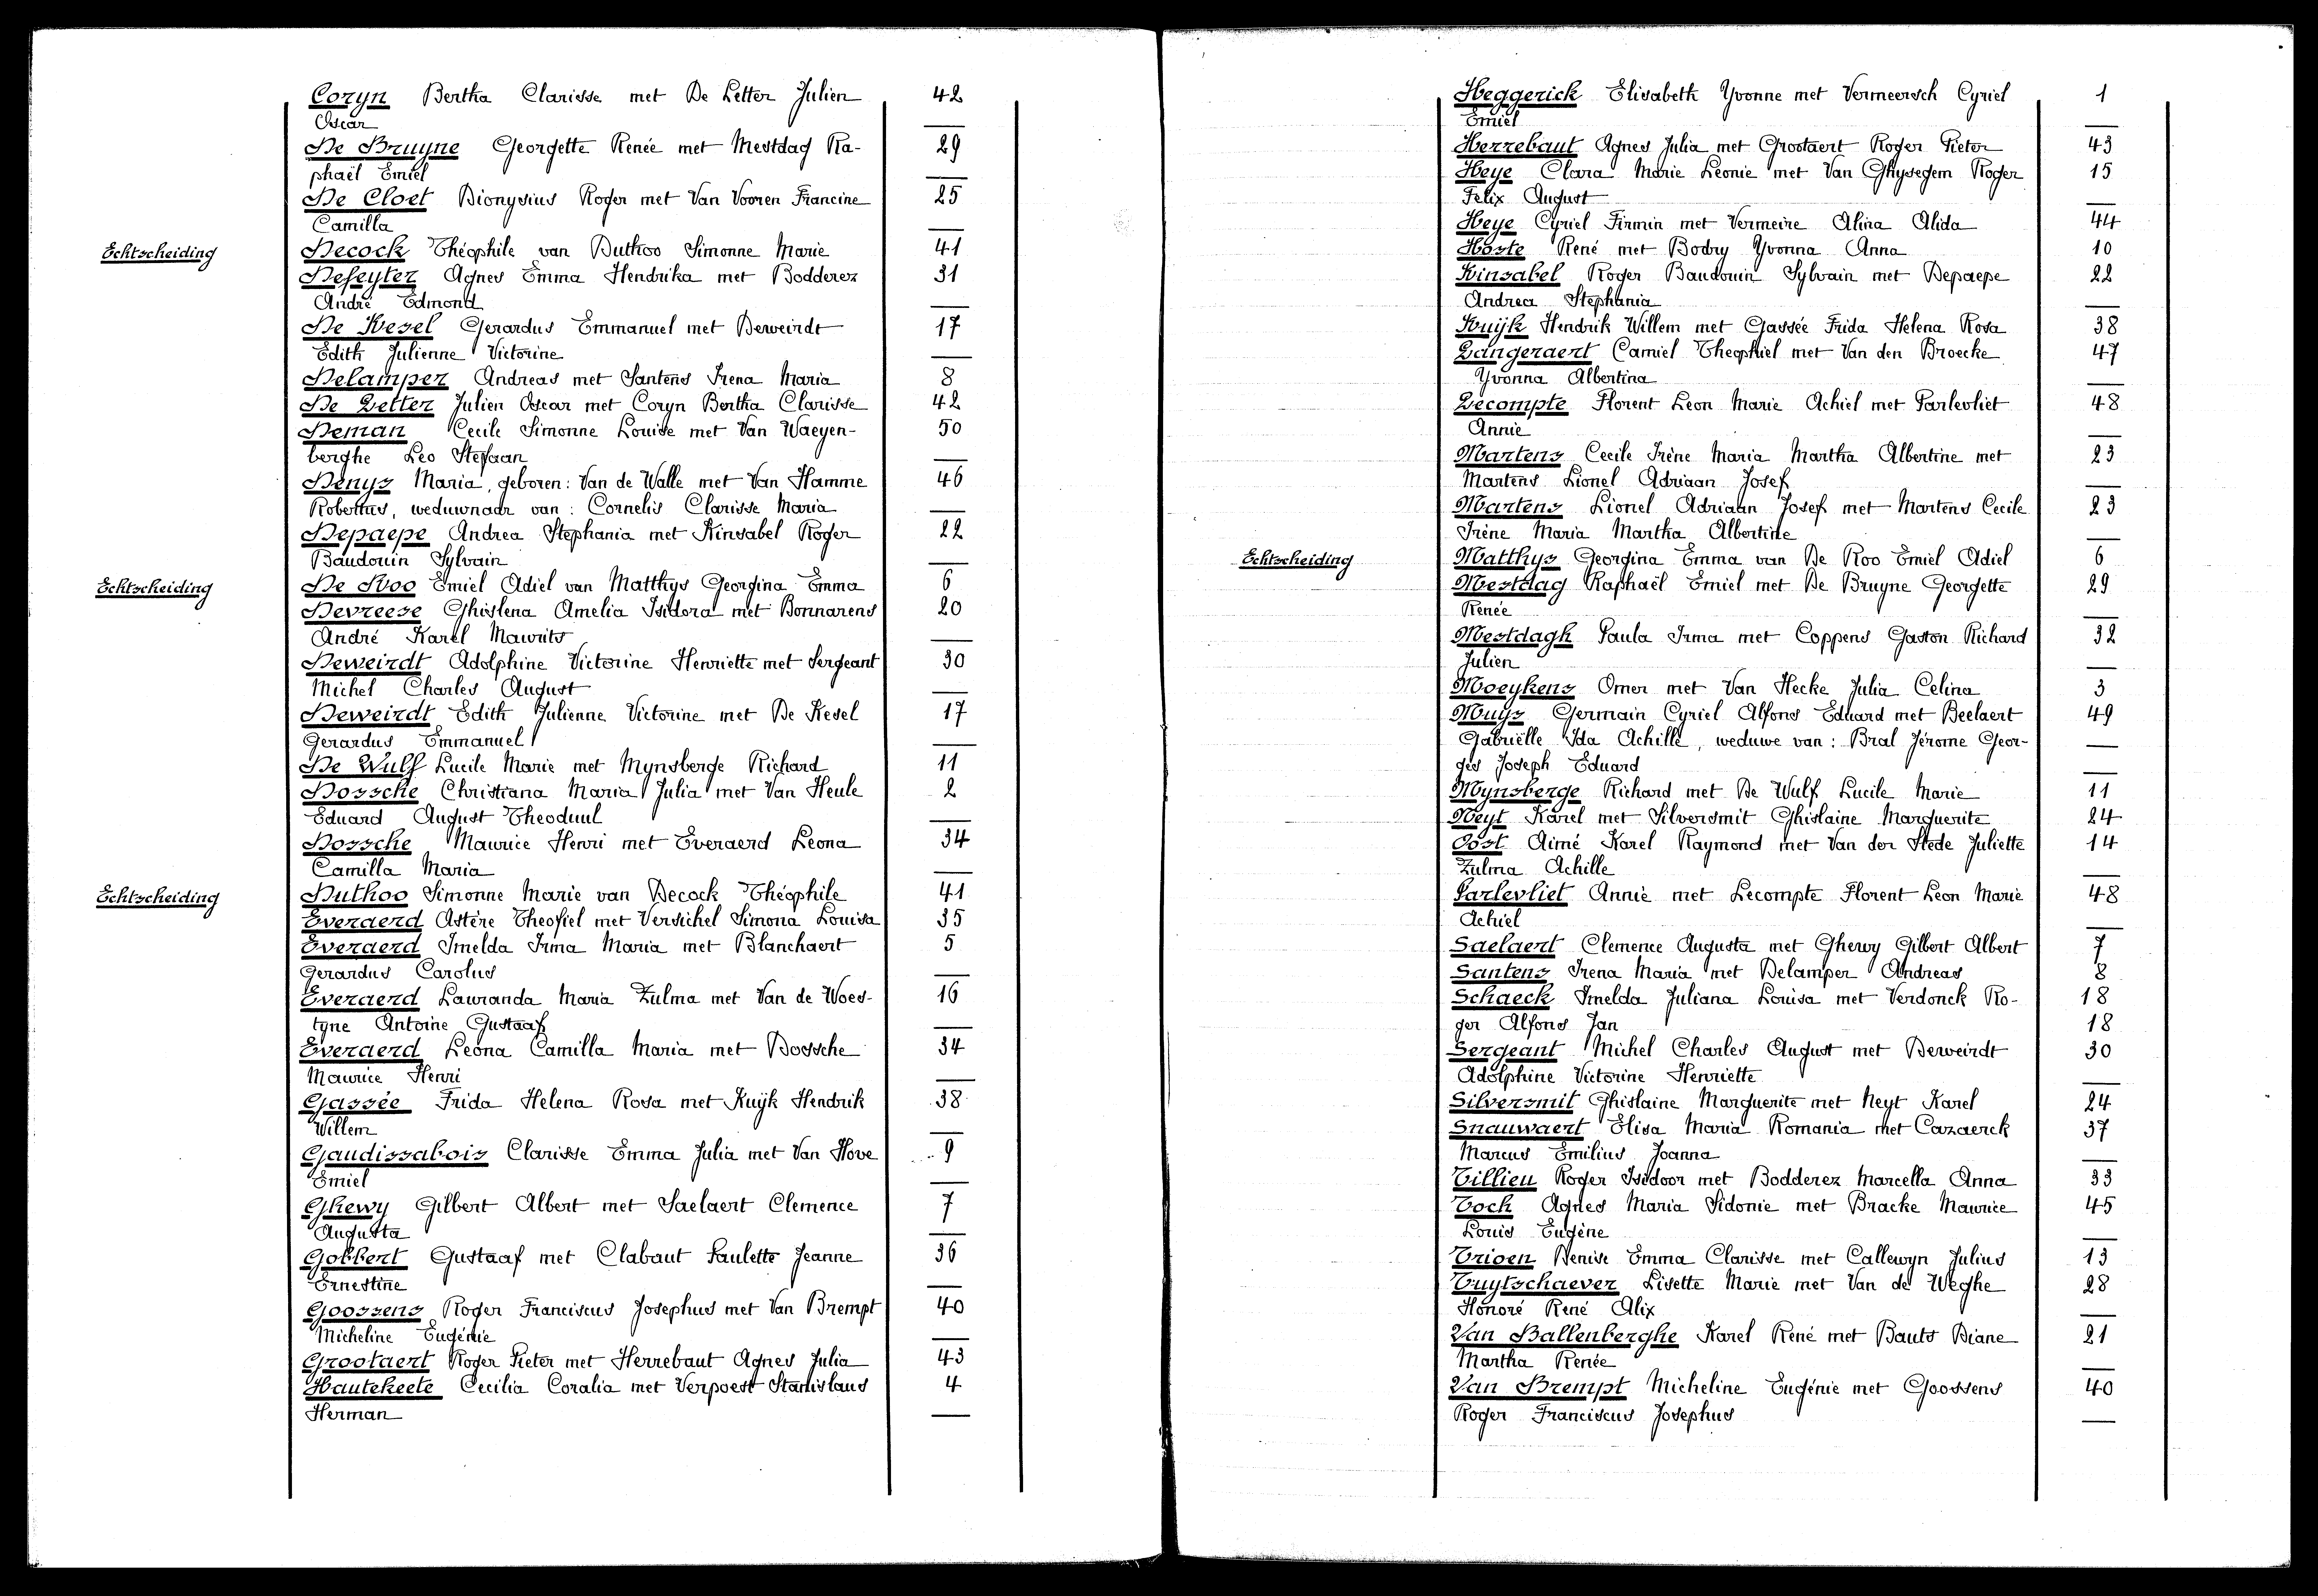 Coryn Bertha Clarisse met De Letter Julien 42
Oscar —
De Bruyne Georgette Renée met Mestdag Ra- 29
phaël Emiel —
De Cloet Dionysius Roger met Van Vooren Francine 25
Camilla —
Echtscheiding Decock Théophile van Duthoo Simonne Marie 41
Defeyter Agnes Emma Hendrika met Bodderez 31
André Edmond —
De Kesel Gerardus Emmanuel met Deweirdt 17
Edith Julienne Victorine —
Delamper Andreas met Santens Irena Maria 8
De Letter Julien Oscar met Coryn Bertha Clarisse 42
Deman Cecile Simonne Louise met Van Waeyen- 50
berghe Leo Stefaan —
Denys Maria, geboren: Van de Walle met Van Hamme 46
Robertus, weduwnaar van: Cornelis Clarisse Maria —
Depaepe Andrea Stephania met Kinsabel Roger 22
Baudouin Sylvain —
Echtscheiding De Roo Emiel Adiel van Matthys Georgina Emma 6
Devreese Ghislena Amelia Isidora met Bonnarens 20
André Karel Maurits —
Deweirdt Adolphine Victorine Henriette met Sergeant 30
Michel Charles August —
Deweirdt Edith Julienne Victorine met De Kesel 17
Gerardus Emmanuel —
De Wulf Lucile Marie met Mynsberge Richard 11
Dossche Christiana Maria Julia met Van Heule 2
Eduard August Theoduul —
Dossche Maurice Henri met Everaerd Leona 34
Camilla Maria —
Echtscheiding Duthoo Simonne Marie van Decock Théophile 41
Everaerd Astère Theofiel met Versichel Simona Louisa 35
Everaerd Imelda Irma Maria met Blanchaert 5
Gerardus Carolus —
Everaerd Lauranda Maria Zulma met Van de Woes- 16
tyne Antoine Gustaaf —
Everaerd Leona Camilla Maria met Dossche 34
Maurice Henri —
Gassée Frida Helena Rosa met Kuijk Hendrik 38
Willem —
Gaudissabois Clarisse Emma Julia met Van Hove 9
Emiel —
Ghewy Gilbert Albert met Saelaert Clemence 7
Augusta —
Gobbert Gustaaf met Clabaut Paulette Jeanne 36
Ernestine —
Goossens Roger Franciscus Josephus met Van Brempt 40
Micheline Eugénie —
Grootaert Roger Pieter met Herrebaut Agnes Julia 43
Hautekeete Cecilia Coralia met Verpoest Stanislaus 4
Herman —
Heggerick Elisabeth Yvonne met Vermeersch Cyriel 1
Emiel —
Herrebaut Agnes Julia met Grootaert Roger Pieter 43
Heye Clara Marie Leonie met Van Ghysegem Roger 15
Felix August —
Heye Cyriel Firmin met Vermeire Alina Alida 44
Hoste René met Bodry Yvonna Anna 10
Kinsabel Roger Baudouin Sylvain met Depaepe 22
Andrea Stephania —
Kuijk Hendrik Willem met Gassée Frida Helena Rosa 38
Langeraert Camiel Theophiel met Van den Broecke 47
Yvonna Albertina —
Lecompte Florent Leon Marie Achiel met Parlevliet 48
Annie —
Martens Cecile Irène Maria Martha Albertine met 23
Martens Lionel Adriaan Josef —
Martens Lionel Adriaan Josef met Martens Cecile 23
Irène Maria Martha Albertine —
Echtscheiding Matthys Georgina Emma van De Roo Emiel Adiel 6
Mestdag Raphaël Emiel met De Bruyne Georgette 29
Renée —
Mestdagh Paula Irma met Coppens Gaston Richard 32
Julien —
Moeykens Omer met Van Hecke Julia Celina 3
Muys Germain Cyriel Alfons Eduard met Beelaert 49
Gabriëlle Ida Achille, weduwe van: Bral Jérome Geor- —
ges Joseph Eduard —
Mynsberge Richard met De Wulf Lucile Marie 11
Neyt Karel met Silversmit Ghislaine Marguerite 24
Oost Aimé Karel Raymond met Van der Stede Juliette 14
Zulma Achille —
Parlevliet Annie met Lecompte Florent Leon Marie 48
Achiel —
Saelaert Clemence Augusta met Ghewy Gilbert Albert 7
Santens Irena Maria met Delamper Andreas 8
Schaeck Imelda Juliana Louisa met Verdonck Ro- 18
ger Alfons Jan 18
Sergeant Michel Charles August met Deweirdt 30
Adolphine Victorine Henriette —
Silversmit Ghislaine Marguerite met Neyt Karel 24
Snauwaert Elisa Maria Romania met Cazaerck 37
Marcus Emilius Joanna —
Tillieu Roger Isidoor met Bodderez Marcella Anna 33
Tock Agnes Maria Sidonie met Bracke Maurice 45
Louis Eugène —
Trioen Denise Emma Clarisse met Callewyn Julius 13
Tuytschaever Lisette Marie met Van de Weghe 28
Honoré René Alix —
Van Ballenberghe Karel René met Bauts Diane 21
Martha Renée —
Van Brempt Micheline Eugénie met Goossens 40
Roger Franciscus Josephus —